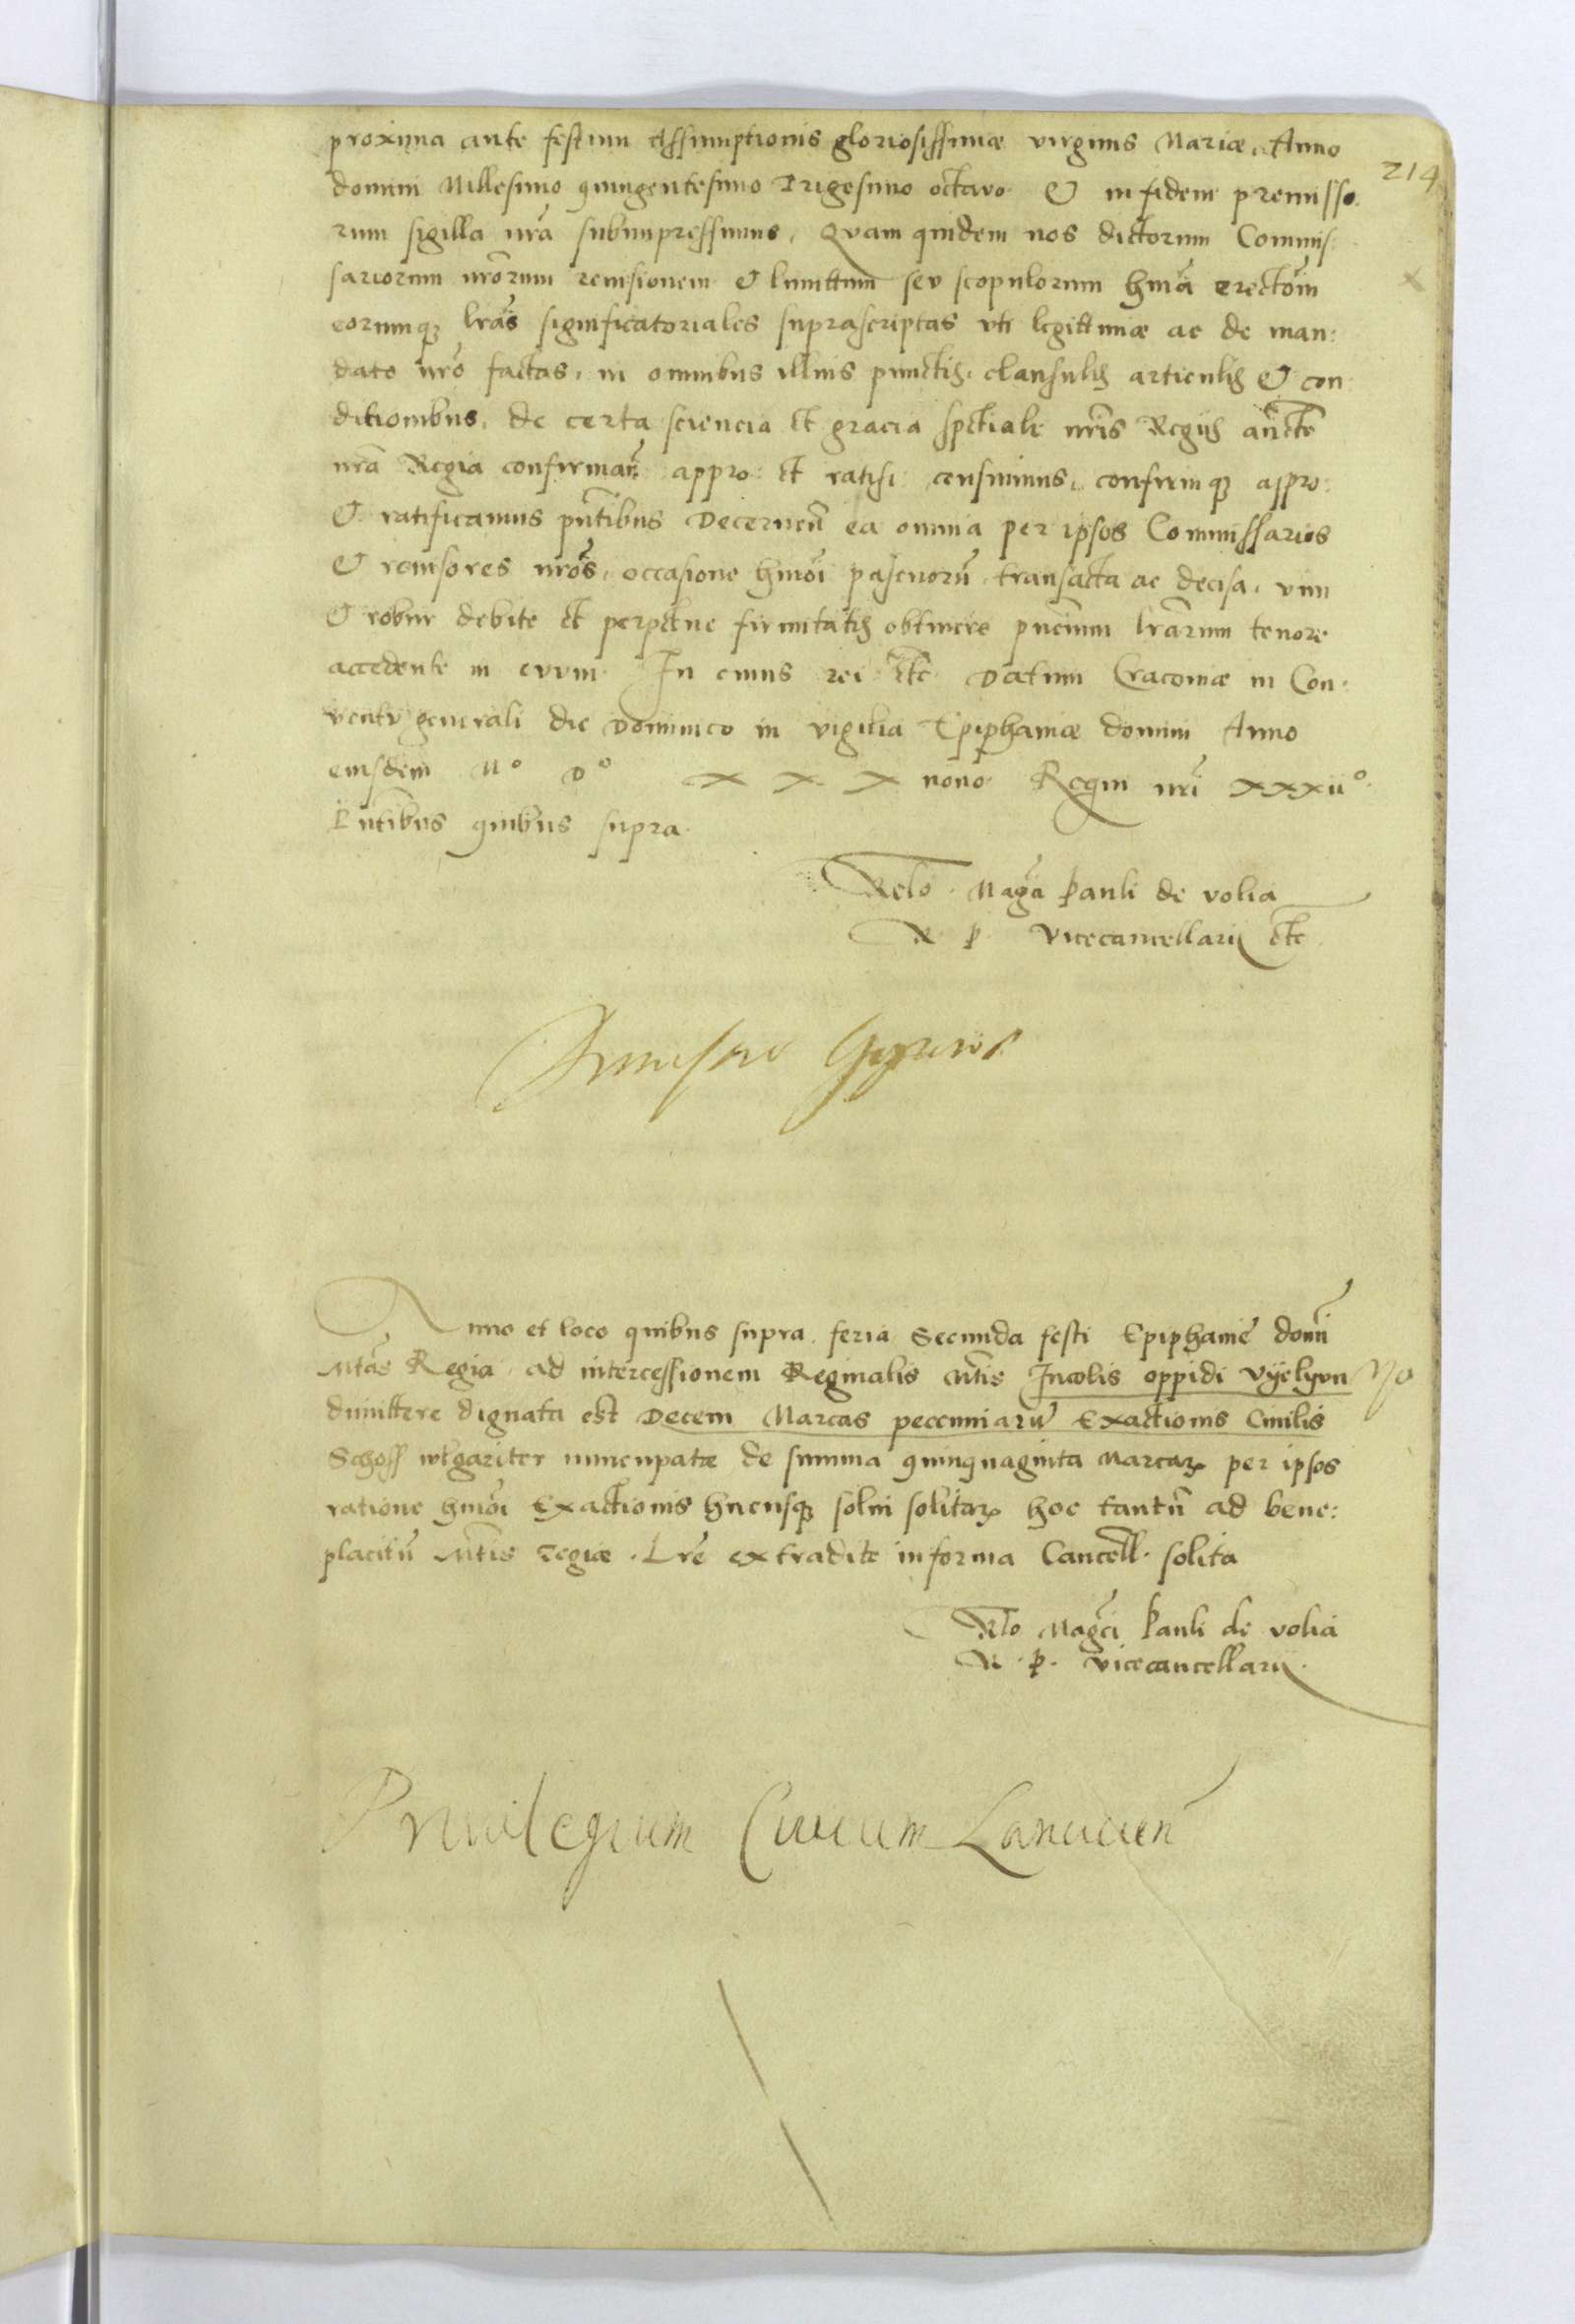 214
proxima ante festum Assumptionis gloriosissimæ virginis Mariæ, Anno
domini Millesimo quingentesimo Trigesimo octavo & in fidem premisso:
rum sigilla nrã subimpressimus, Quam quidem nos dictorum Commis:
sariorum nrõrum reuisionem & limittum seu scopulorum hmõi erectõm
eorumq; lrãs significatoriales suprascriptas uti legittimæ ac de man:
dato nrõ factas, in omnibus illius punctis, clausulis articulis & con:
ditionibus, de certa sciencia et gracia spetiali nris Regijs auncte
nrã Regia confirmañ: appro: et ratifi: censuimus, confirmq; appro:
& ratificamus pñtibus Decerneñ ea omnia per ipsos Commissarios
& reuisores nrõs, occasione hmõi pascuorũ transacta ac decisa, vim
& robur debite et perpetue firmitatis obtinere pñcium lrãrum tenore
accedente in evum In cuius rei etc Datum Cracouiæ in Con:
ventu generali die Dominico in vigilia Epiphaniæ domini Anno
eiusdem Mº Dº X X X nono Regni nri xxxiiº
Pñtibus quibus supra
Relõ Magci Pauli de volia
R P Vicecancellarij etc
Anno et loco quibus supra feria Secunda festi Epiphanie domi
Mtãs Regia ad intercessionem Reginalis Mtis Incolis oppidi Vyelyon
dimittere dignata est Decem Marcas peccuniarũ Exactionis Ciuilis
Schoss wlgariter nuncupatæ de summa quinquaginta Marcaꝝ per ipsos
ratione hmõi Exactionis hucusq; solui solitaꝝ hoc tantũ ad bene:
placitũ Mtis regiæ. Lrẽ extradite in forma Cancell. solita
Rlo Magci Pauli de volia
R. P. vicecancellarij.
Priuilegium Ciuium Lancicien